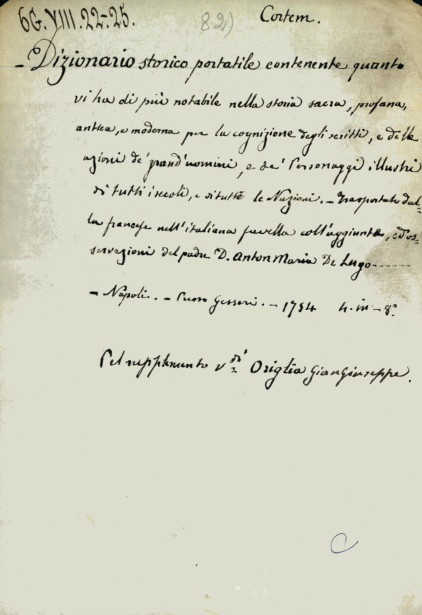 6G.VIII.22-25. 82) Cortem.
- Dizionario storico portatile contenente quanto
vi ha di più notabile nella storia sacra, profana,
antica, e moderna per la cognizione degli scritti, e delle
azioni de' grand'uomini, e de' Personaggi illustri
di tutti i secoli, e di tutte le Nazioni. - Trasportato dal-
la francese nell'italiana favella coll'aggiunta, ed os-
servazioni del padre D. Anton Maria De Lugo
- Napoli. - Presso Gessari. - 1754 4. in - 8°.
Pel supplemento v. Origlia Giangiuseppe.
C